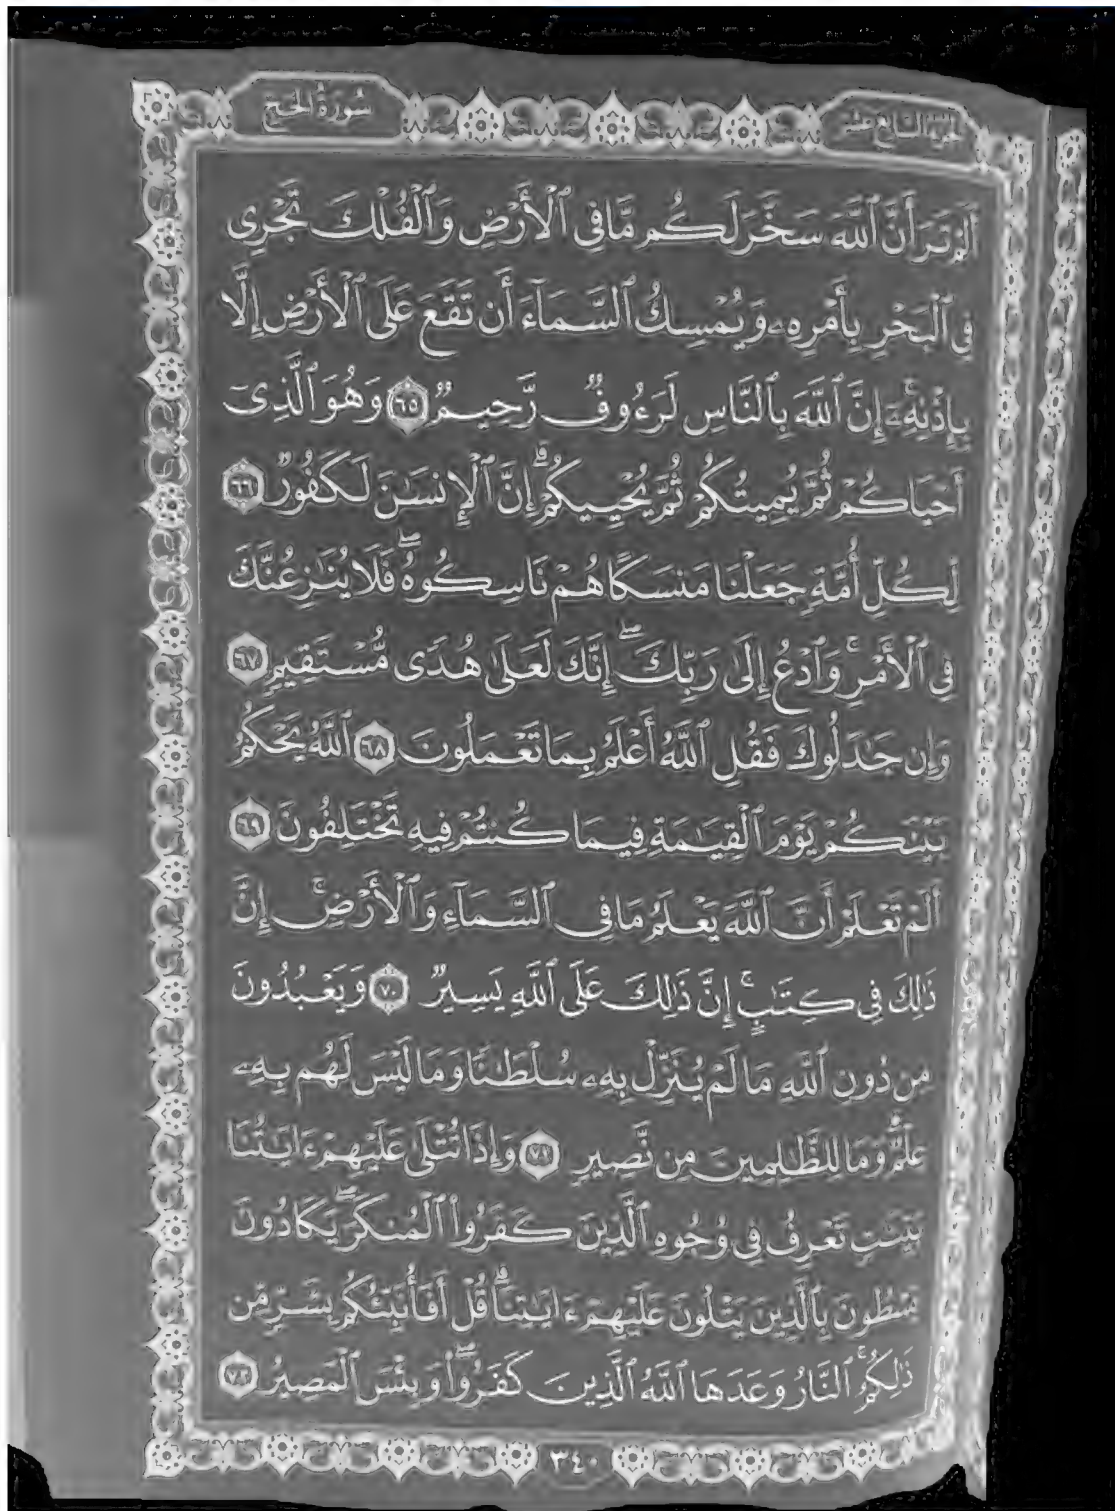 سُورَةُ الحَجّ
الجزء السابع عشر
أَلَمْ تَرَ أَنَّ ٱللَّهَ سَخَّرَ لَكُم مَّا فِي ٱلْأَرْضِ وَٱلْفُلْكَ تَجْرِي
فِي ٱلْبَحْرِ بِأَمْرِهِۦ وَيُمْسِكُ ٱلسَّمَآءَ أَن تَقَعَ عَلَى ٱلْأَرْضِ إِلَّا
بِإِذْنِهِۦٓۚ إِنَّ ٱللَّهَ بِٱلنَّاسِ لَرَءُوفٌ رَّحِيمٌ ٦٥ وَهُوَ ٱلَّذِيٓ
أَحْيَاكُمْ ثُمَّ يُمِيتُكُمْ ثُمَّ يُحْيِيكُمْۗ إِنَّ ٱلْإِنسَٰنَ لَكَفُورٌ ٦٦
لِكُلِّ أُمَّةٍ جَعَلْنَا مَنسَكًا هُمْ نَاسِكُوهُۖ فَلَا يُنَٰزِعُنَّكَ
فِي ٱلْأَمْرِۚ وَٱدْعُ إِلَىٰ رَبِّكَۖ إِنَّكَ لَعَلَىٰ هُدًى مُّسْتَقِيمٍ ٦٧
وَإِن جَٰدَلُوكَ فَقُلِ ٱللَّهُ أَعْلَمُ بِمَا تَعْمَلُونَ ٦٨ ٱللَّهُ يَحْكُمُ
بَيْنَكُمْ يَوْمَ ٱلْقِيَٰمَةِ فِيمَا كُنتُمْ فِيهِ تَخْتَلِفُونَ ٦٩
أَلَمْ تَعْلَمْ أَنَّ ٱللَّهَ يَعْلَمُ مَا فِي ٱلسَّمَآءِ وَٱلْأَرْضِۚ إِنَّ
ذَٰلِكَ فِي كِتَٰبٍۚ إِنَّ ذَٰلِكَ عَلَى ٱللَّهِ يَسِيرٌ ٧٠ وَيَعْبُدُونَ
مِن دُونِ ٱللَّهِ مَا لَمْ يُنَزِّلْ بِهِۦ سُلْطَٰنًا وَمَا لَيْسَ لَهُم بِهِۦ
عِلْمٌۗ وَمَا لِلظَّٰلِمِينَ مِن نَّصِيرٍ ٧١ وَإِذَا تُتْلَىٰ عَلَيْهِمْ ءَايَٰتُنَا
بَيِّنَٰتٍ تَعْرِفُ فِي وُجُوهِ ٱلَّذِينَ كَفَرُوا۟ ٱلْمُنكَرَۖ يَكَادُونَ
يَسْطُونَ بِٱلَّذِينَ يَتْلُونَ عَلَيْهِمْ ءَايَٰتِنَاۗ قُلْ أَفَأُنَبِّئُكُم بِشَرٍّ مِّن
ذَٰلِكُمُۚ ٱلنَّارُ وَعَدَهَا ٱللَّهُ ٱلَّذِينَ كَفَرُوا۟ۖ وَبِئْسَ ٱلْمَصِيرُ ٧٢
٣٤٠